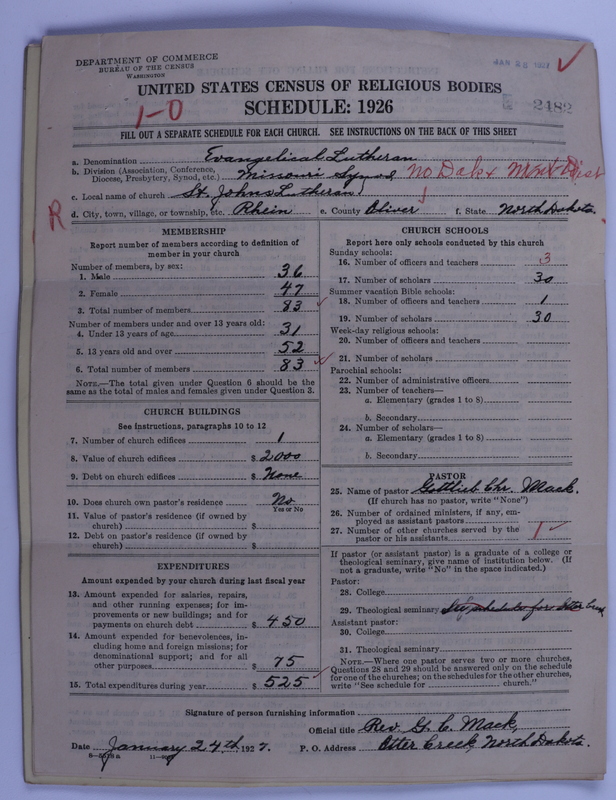 DEPARTMENT OF COMMERCE
BUREAU OF THE CENSUS
WASHINGTON
JAN 26 1927
UNITED STATES CENSUS OF RELIGIOUS BODIES
SCHEDULE: 1926
1-0
2482
FILL OUT A SEPARATE SCHEDULE FOR EACH CHURCH. SEE INSTRUCTIONS ON THE BACK OF THIS SHEET
a. Denomination Evangelical Lutheran
b. Division (Association, Conference, Diocese, Presbytery, Synod, etc.) Missouri Synod No Dak & Mont Dist
c. Local name of church St. Johns Lutheran
R
d. City, town, village, or township, etc. Rhein e. County Oliver f. State North Dakota.
MEMBERSHIP
Report number of members according to definition of
member in your church
Number of members, by sex:
1. Male 36
2. Female 47
3. Total number of members 83
Number of members under and over 13 years old:
4. Under 13 years of age 31
5. 13 years old and over 52
6. Total number of members 83
NOTE.—The total given under Question 6 should be the
same as the total of males and females given under Question 3.
CHURCH BUILDINGS
See instructions, paragraphs 10 to 12
7. Number of church edifices 1
8. Value of church edifices $ 2000
9. Debt on church edifices $ None
10. Does church own pastor's residence No
Yes or No
11. Value of pastor's residence (if owned by
church) $
12. Debt on pastor's residence (if owned by
church) $
EXPENDITURES
Amount expended by your church during last fiscal year
13. Amount expended for salaries, repairs,
and other running expenses; for im-
provements or new buildings; and for
payments on church debt $ 450
14. Amount expended for benevolences, in-
cluding home and foreign missions; for
denominational support; and for all
other purposes $ 75
15. Total expenditures during year $ 525
CHURCH SCHOOLS
Report here only schools conducted by this church
Sunday schools:
16. Number of officers and teachers 3
17. Number of scholars 30
Summer vacation Bible schools:
18. Number of officers and teachers 1
19. Number of scholars 30
Week-day religious schools:
20. Number of officers and teachers
21. Number of scholars
Parochial schools:
22. Number of administrative officers
23. Number of teachers—
a. Elementary (grades 1 to 8)
b. Secondary
24. Number of scholars—
a. Elementary (grades 1 to 8)
b. Secondary
PASTOR
25. Name of pastor Gottlieb Chr. Mack.
(If church has no pastor, write "None")
26. Number of ordained ministers, if any, em-
ployed as assistant pastors
27. Number of other churches served by the
pastor or his assistants 1
If pastor (or assistant pastor) is a graduate of a college or
theological seminary, give name of institution below. (If
not a graduate, write "No" in the space indicated.)
Pastor:
28. College
29. Theological seminary See schedule for Otter Creek
Assistant pastor:
30. College
31. Theological seminary
NOTE.—Where one pastor serves two or more churches,
Questions 28 and 29 should be answered only on the schedule
for one of the churches; on the schedules for the other churches,
write "See schedule for church."
Signature of person furnishing information
Official title Rev. G. C. Mack,
Date January 24th, 1927. P. O. Address Otter Creek, North Dakota.